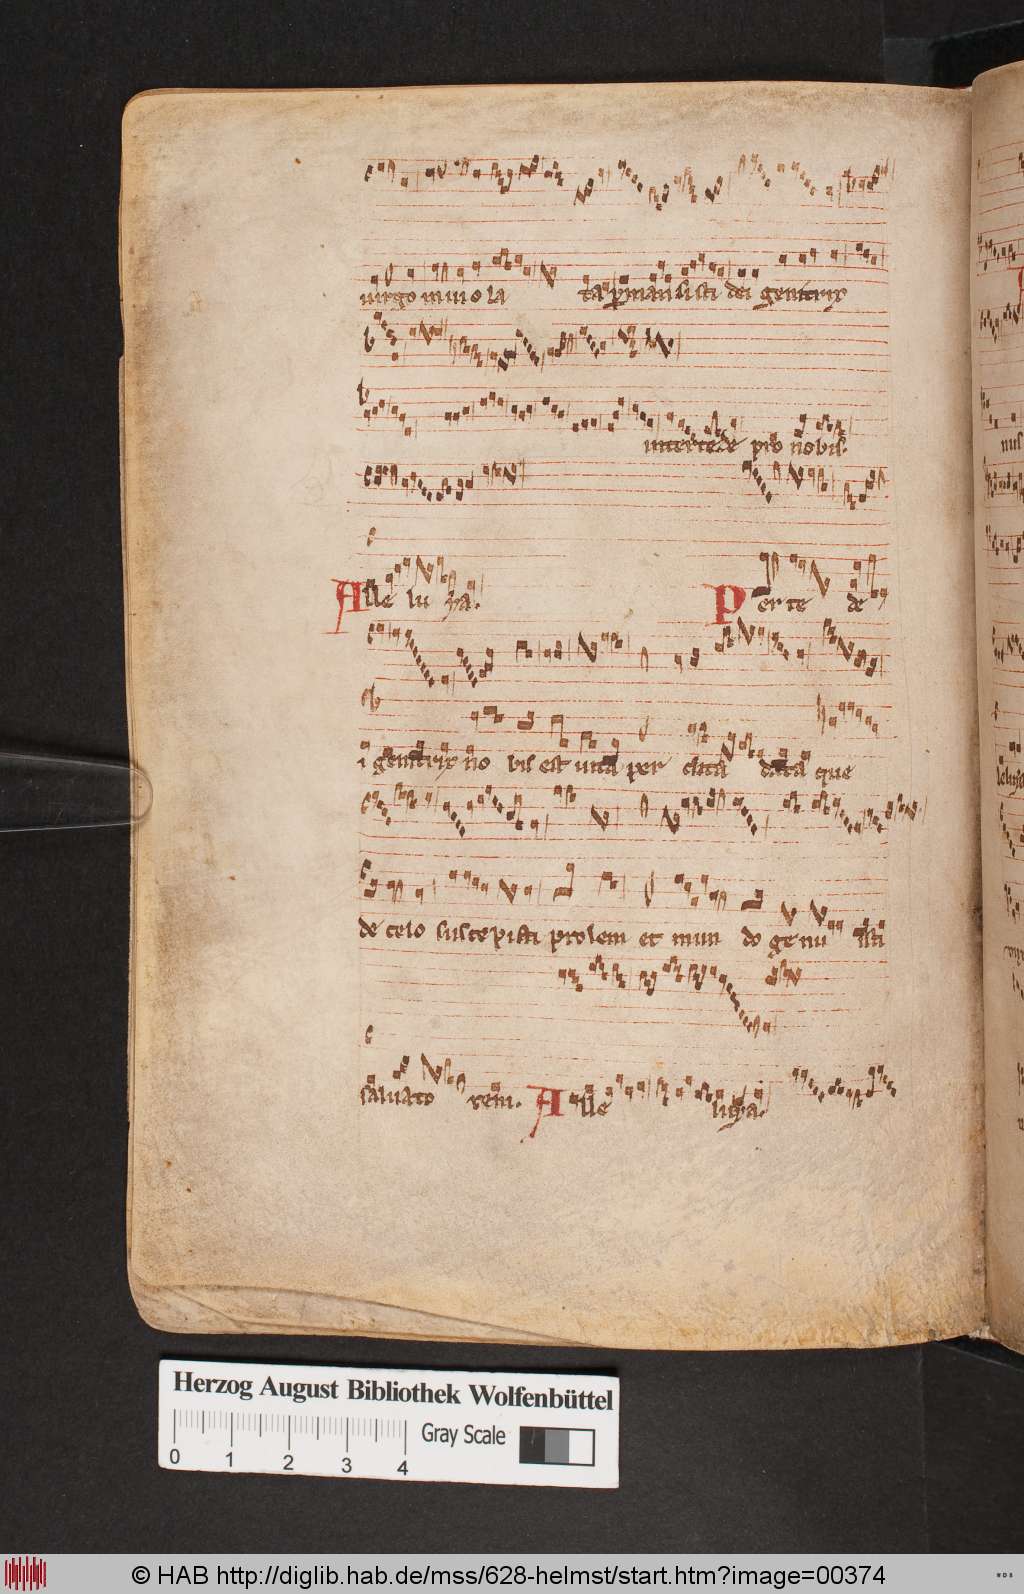 uirgo inuiola ta pmansisti dei genitrix
intercede pro nobis.
Alle lu ya. Per te de
i genitrix no bis est uita per dita data que
de celo suscepisti prolem et mun do genu isti
saluato rem. Alle luya.
nus
Herzog August Bibliothek Wolfenbüttel
Gray Scale
0 1 2 3 4
© HAB http://diglib.hab.de/mss/628-helmst/start.htm?image=00374